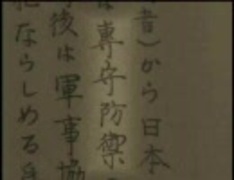 昔）から日本
は専守防禦
後は軍事協
犯ならしめる